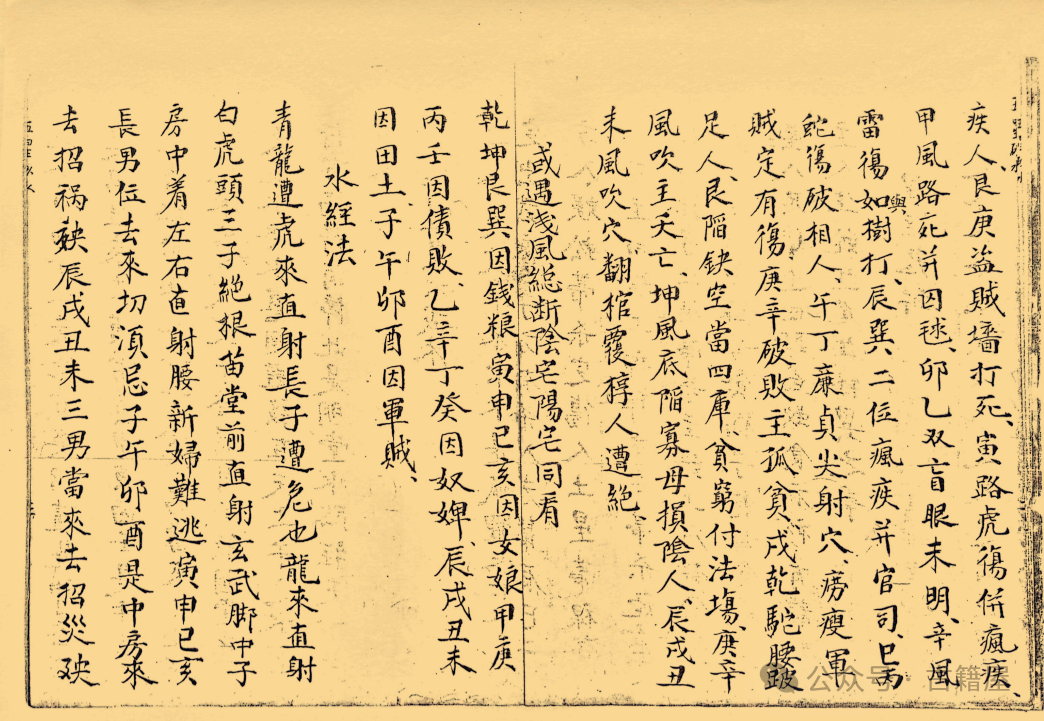 疾人、艮庚盗賊墻打死、寅路虎傷併瘋疾、
甲風路死并囚毬、卯乙双盲眼未明、辛風
雷傷如樹打、辰巽二位瘋疾并官司、巳丙
與
蛇傷破相人、午丁廉貞尖射穴、癆瘦軍
賊定有傷、庚辛破敗主孤貧、戌乾駝腰跛
足人、艮陷缺空當四庫、貧窮付法塲、庚辛
風吹主夭亡、坤風底陷寡母損陰人、辰戌丑
未風吹穴、翻棺覆椁人遭絕、
或遇淺風総断陰宅陽宅同看
乾坤艮巽因錢粮寅申巳亥因女娘甲庚
丙壬因債敗、乙辛丁癸因奴婢、辰戌丑未
因田土、子午卯酉因軍賊、
水經法
青龍遭虎來直射長子遭危也龍來直射
白虎頭三子絕根苗堂前直射玄武脚中子
房中着左右直射腰新婦難逃寅申巳亥
長男位去來切須忌子午卯酉是中房來
去招禍殃辰戌丑未三男當來去招災殃
公众号·古籍屋